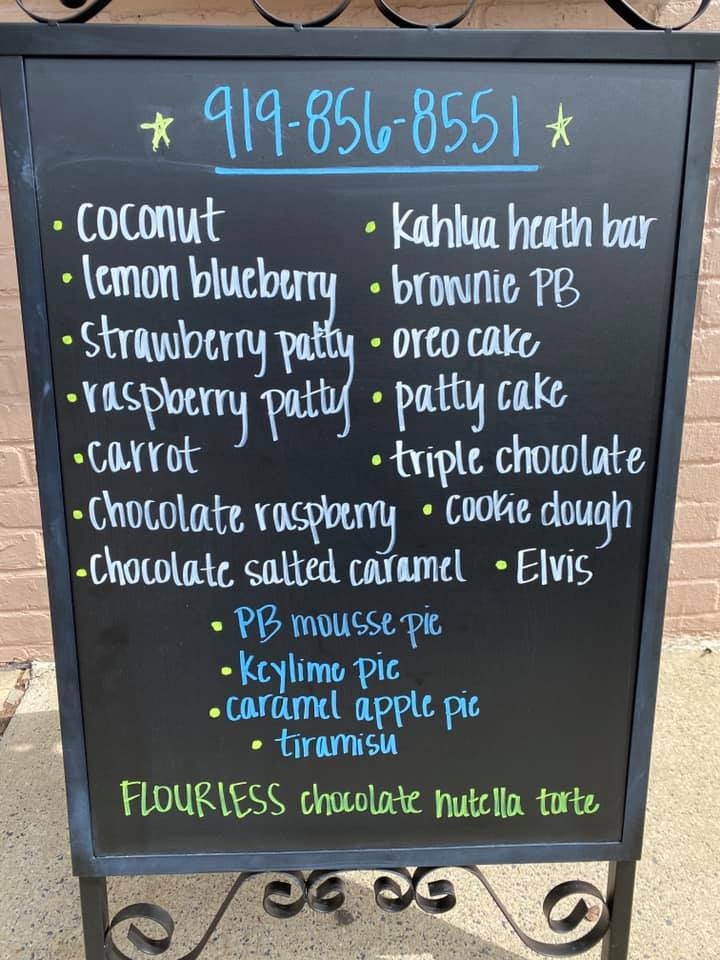 919-856-8551
• coconut
• Kahlua heath bar
• lemon blueberry
• brownie PB
• strawberry patty
• oreo cake
• raspberry patty
• patty cake
• carrot
• triple chocolate
• chocolate raspberry
• cookie dough
• chocolate salted caramel
• Elvis
• PB mousse pie
• keylime pie
• caramel apple pie
• tiramisu
FLOURLESS chocolate nutella torte